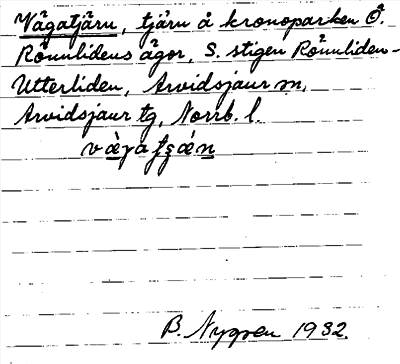 Vågatjärn, tjärn å kronoparken Ö.
Rönnlidens ägor, S. stigen Rönnliden-
Utterliden, Arvidsjaur sn,
Arvidsjaur tg, Norrb. l.
B. Nygren 1932.